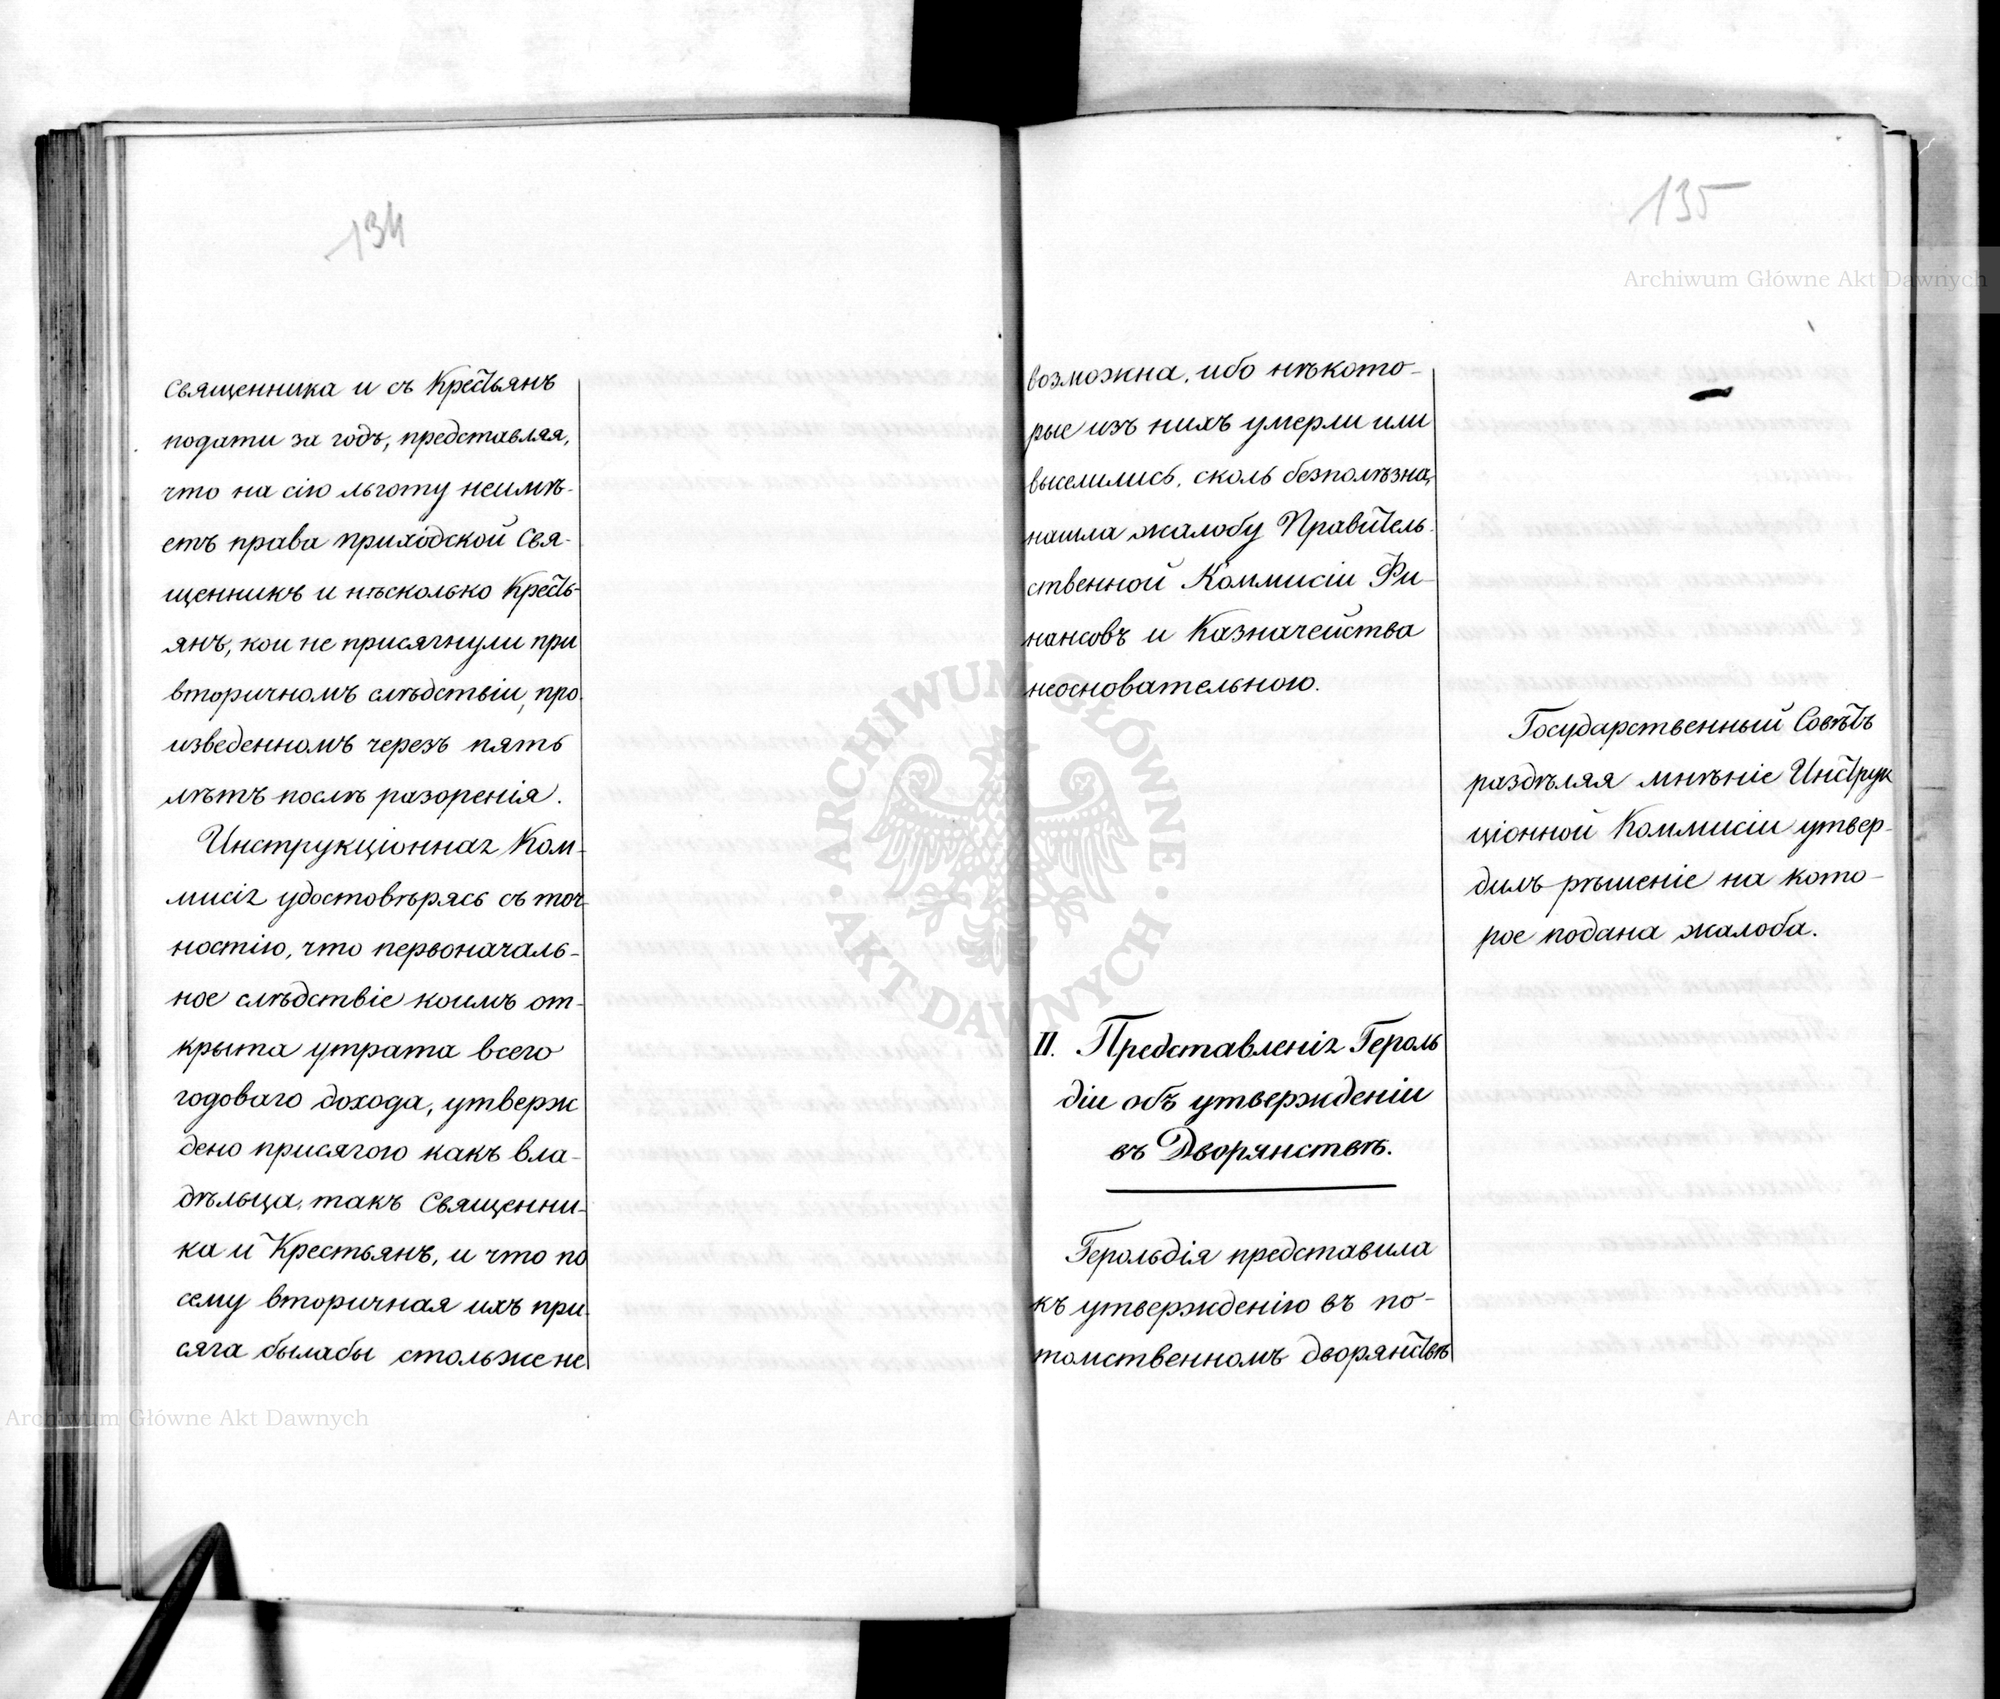 134
Священника и съ Крестьянъ
подати за годъ, представляя,
что на сію льготу неимѣ-
етъ права приходской Свя-
щенникъ и нѣсколько Кресть-
янъ, кои не присягнули при
вторичномъ слѣдствіи, про-
изведенномъ черезъ пять
лѣтъ послѣ разоренія.
Инструкціонная Ком-
мисія удостовѣрясь съ точ-
ностію, что первоначаль-
ное слѣдствіе коимъ от-
крыта утрата всего
годоваго дохода, утверж
дено присягою какъ вла-
дѣльца, такъ Священни-
ка и Крестьянъ, и что по
сему вторичная ихъ при-
сяга былабы стольже не
135
возможна, ибо нѣкото-
рые изъ нихъ умерли или
выселились, сколь безполѣзна,
нашла жалобу Правитель-
ственной Коммисіи Фи-
нансовъ и Казначейства
неосновательною.
Государственный Совѣтъ
раздѣляя мнѣніе Инструк
ціонной Коммисіи утвер-
дилъ рѣшеніе на кото-
рое подана жалоба.
II. Представленія Героль
діи объ утвержденіи
въ Дворянствѣ.
Герольдія представила
къ утвержденію въ по-
томственномъ дворянствѣ
Archiwum Główne Akt Dawnych
Archiwum Główne Akt Dawnych
ARCHIWUM GŁÓWNE
AKT DAWNYCH